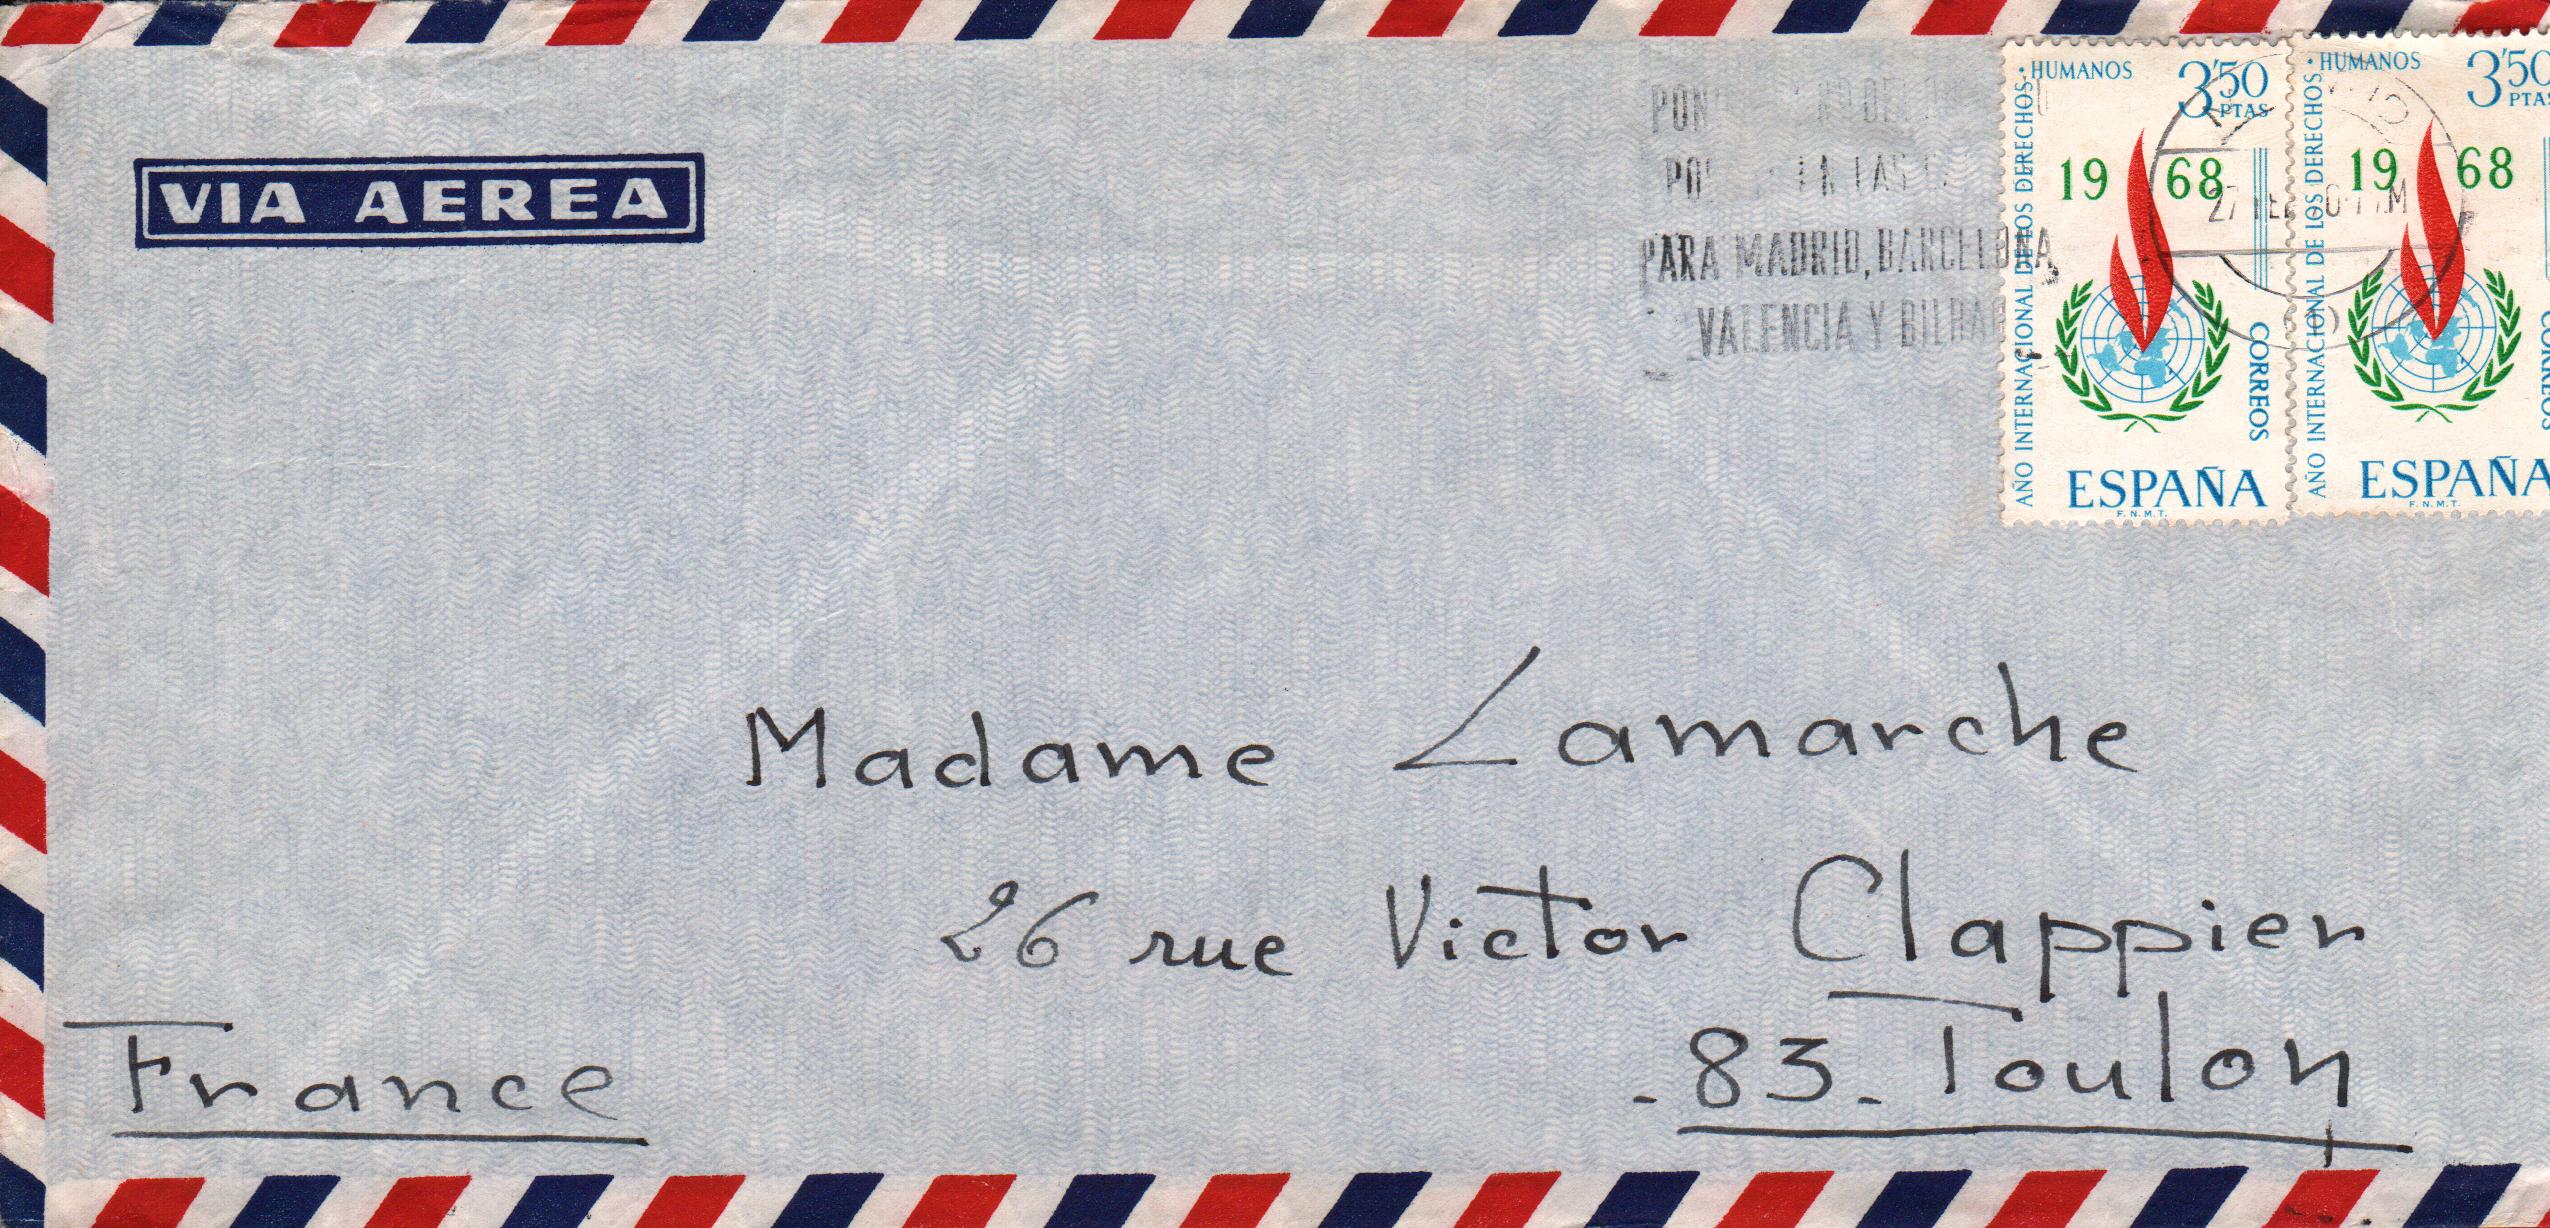 VIA AEREA
PARA MADRID, BARCELONA
VALENCIA Y BILBAO
AÑO INTERNACIONAL DE LOS DERECHOS
HUMANOS
3'50
PTAS
19 68
CORREOS
ESPAÑA
F.N.M.T.
AÑO INTERNACIONAL DE LOS DERECHOS
HUMANOS
3'50
PTAS
19 68
CORREOS
ESPAÑA
F.N.M.T.
Madame Lamarche
26 rue Victor Clappier
- 83 - Toulon
France